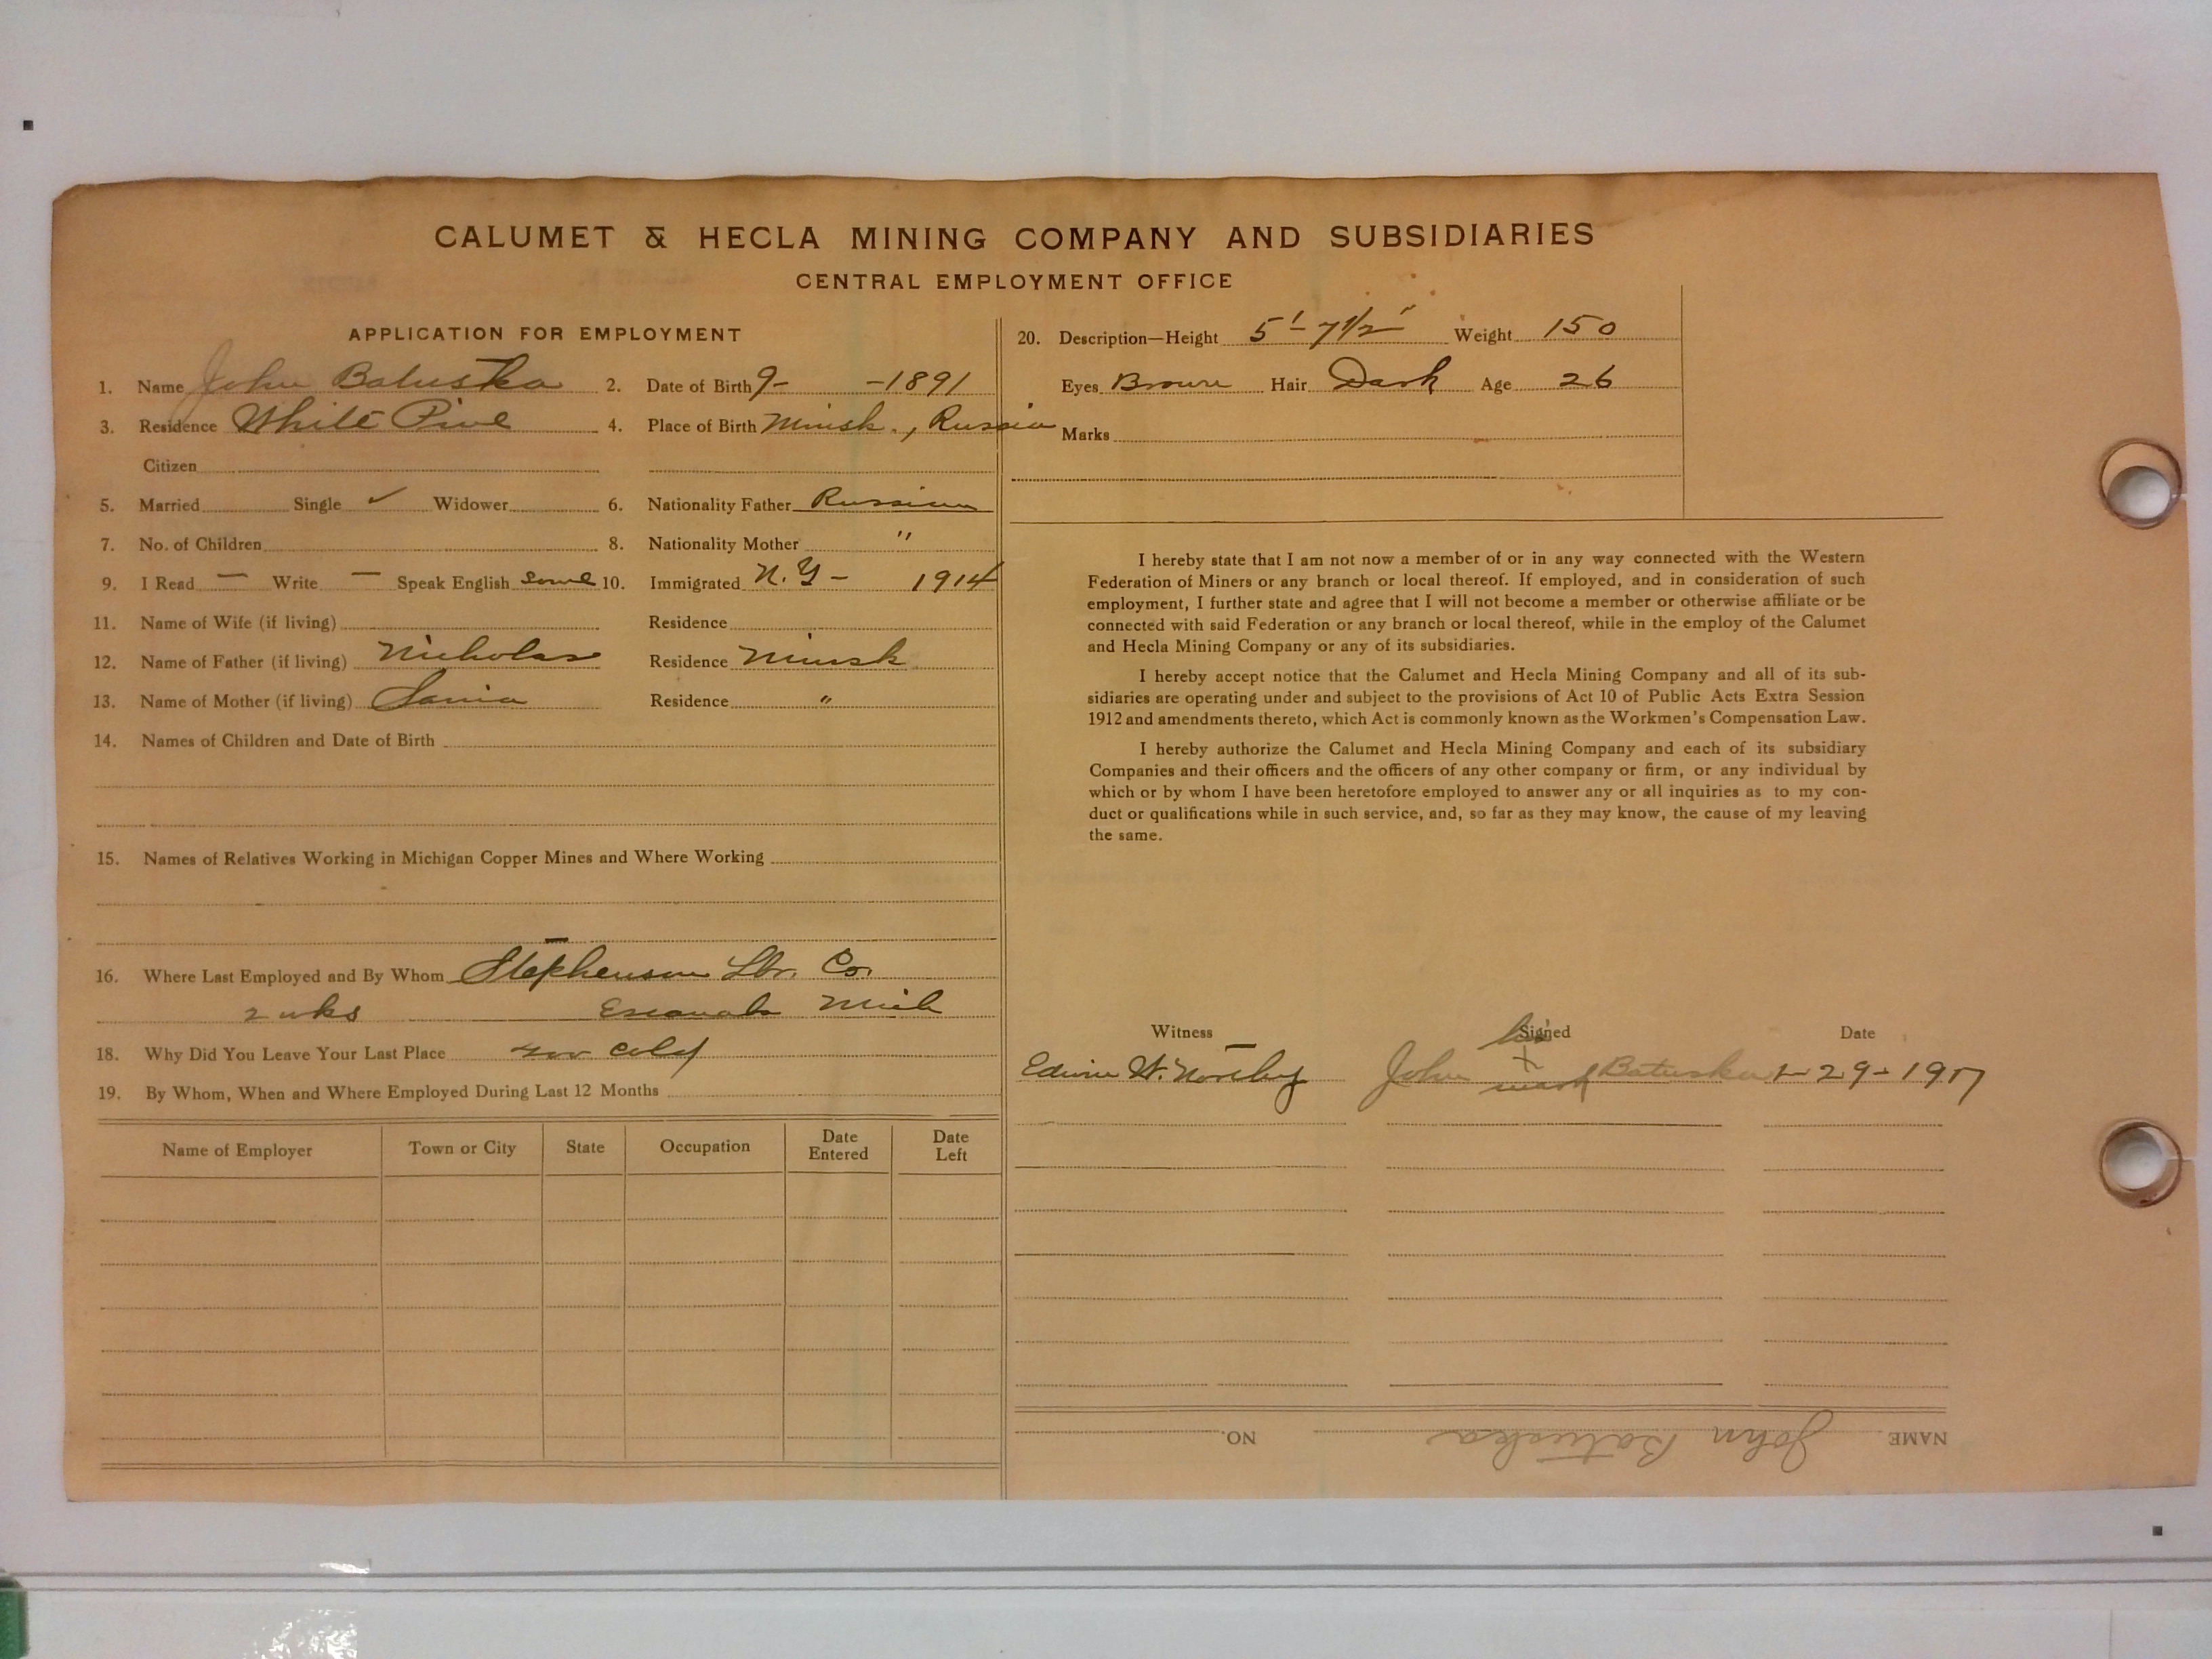 CALUMET & HECLA MINING COMPANY AND SUBSIDIARIES
CENTRAL EMPLOYMENT OFFICE
APPLICATION FOR EMPLOYMENT
1. Name John Batuska 2. Date of Birth 9- -1891
3. Residence White Pine 4. Place of Birth Minsk., Russia
Citizen
5. Married Single ✓ Widower 6. Nationality Father Russian
7. No. of Children 8. Nationality Mother "
9. I Read — Write — Speak English some 10. Immigrated N.Y - 1914
11. Name of Wife (if living) Residence
12. Name of Father (if living) Nicholas Residence Minsk
13. Name of Mother (if living) Residence "
14. Names of Children and Date of Birth
15. Names of Relatives Working in Michigan Copper Mines and Where Working
16. Where Last Employed and By Whom Stephenson Lbr. Co.
2 wks Escanaba Mich
18. Why Did You Leave Your Last Place cold
19. By Whom, When and Where Employed During Last 12 Months
Name of Employer Town or City State Occupation Date Entered Date Left
20. Description—Height 5'- 7 1/2" Weight 150
Eyes Brown Hair Dark Age 26
Marks
I hereby state that I am not now a member of or in any way connected with the Western
Federation of Miners or any branch or local thereof. If employed, and in consideration of such
employment, I further state and agree that I will not become a member or otherwise affiliate or be
connected with said Federation or any branch or local thereof, while in the employ of the Calumet
and Hecla Mining Company or any of its subsidiaries.
I hereby accept notice that the Calumet and Hecla Mining Company and all of its sub-
sidiaries are operating under and subject to the provisions of Act 10 of Public Acts Extra Session
1912 and amendments thereto, which Act is commonly known as the Workmen's Compensation Law.
I hereby authorize the Calumet and Hecla Mining Company and each of its subsidiary
Companies and their officers and the officers of any other company or firm, or any individual by
which or by whom I have been heretofore employed to answer any or all inquiries as to my con-
duct or qualifications while in such service, and, so far as they may know, the cause of my leaving
the same.
Witness Signed Date
his
Edwin W. John x Batuska 1-29-1917
mark
NAME John Batuska NO.